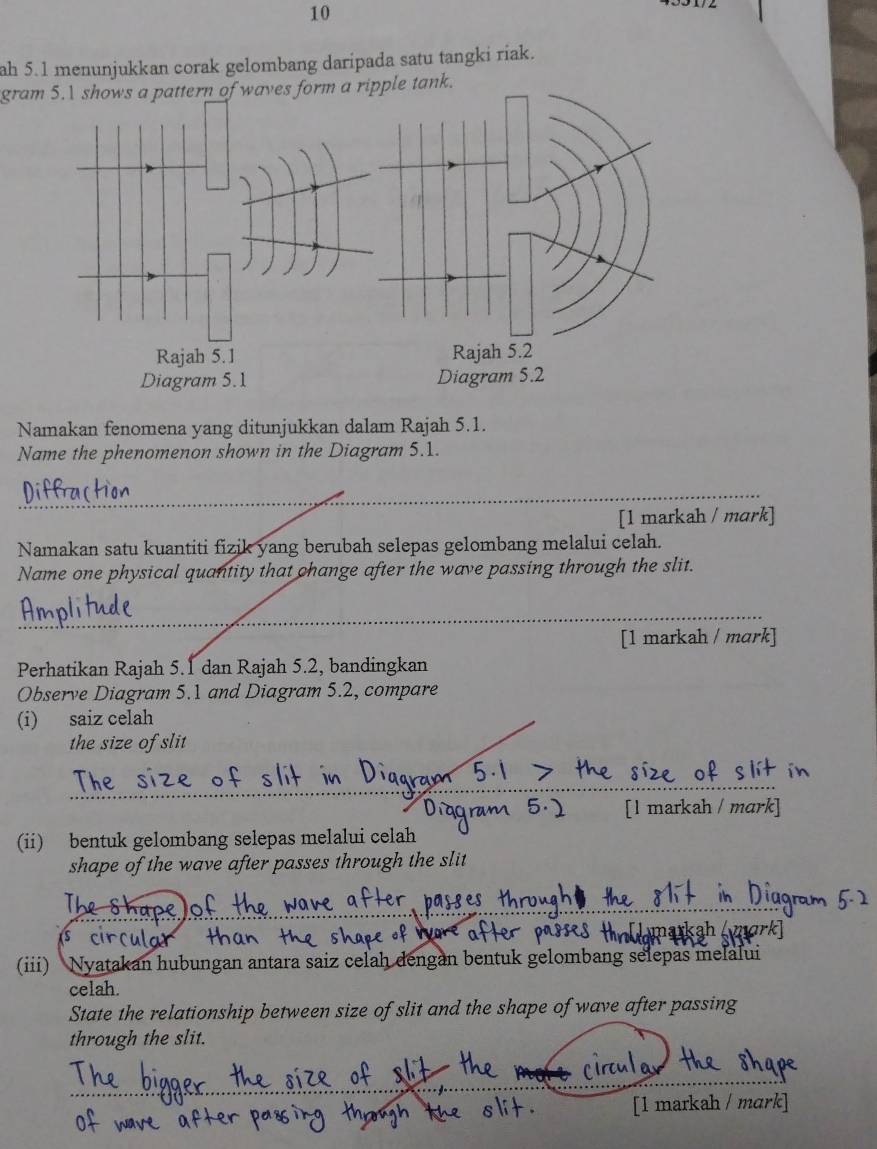 10
ah 5.1 menunjukkan corak gelombang daripada satu tangki riak.
gram 5.1 shows a pattern of waves form a ripple tank.
Rajah 5.1
Diagram 5.1
Rajah 5.2
Diagram 5.2
Namakan fenomena yang ditunjukkan dalam Rajah 5.1.
Name the phenomenon shown in the Diagram 5.1.
Diffraction
[1 markah / mark]
Namakan satu kuantiti fizik yang berubah selepas gelombang melalui celah.
Name one physical quantity that change after the wave passing through the slit.
Amplitude
[1 markah / mark]
Perhatikan Rajah 5.1 dan Rajah 5.2, bandingkan
Observe Diagram 5.1 and Diagram 5.2, compare
(i) saiz celah
the size of slit
The size of slit in Diagram 5.1 > the size of slit in
Diagram 5.2 [1 markah / mark]
(ii) bentuk gelombang selepas melalui celah
shape of the wave after passes through the slit
The shape of the wave after passes through the slit in Diagram 5.2
is circular than the shape of wave after passes through the slit.
[1 markah / mark]
(iii) Nyatakan hubungan antara saiz celah dengan bentuk gelombang selepas melalui
celah.
State the relationship between size of slit and the shape of wave after passing
through the slit.
The bigger the size of slit, the more circular the shape
of wave after passing through the slit. [1 markah / mark]